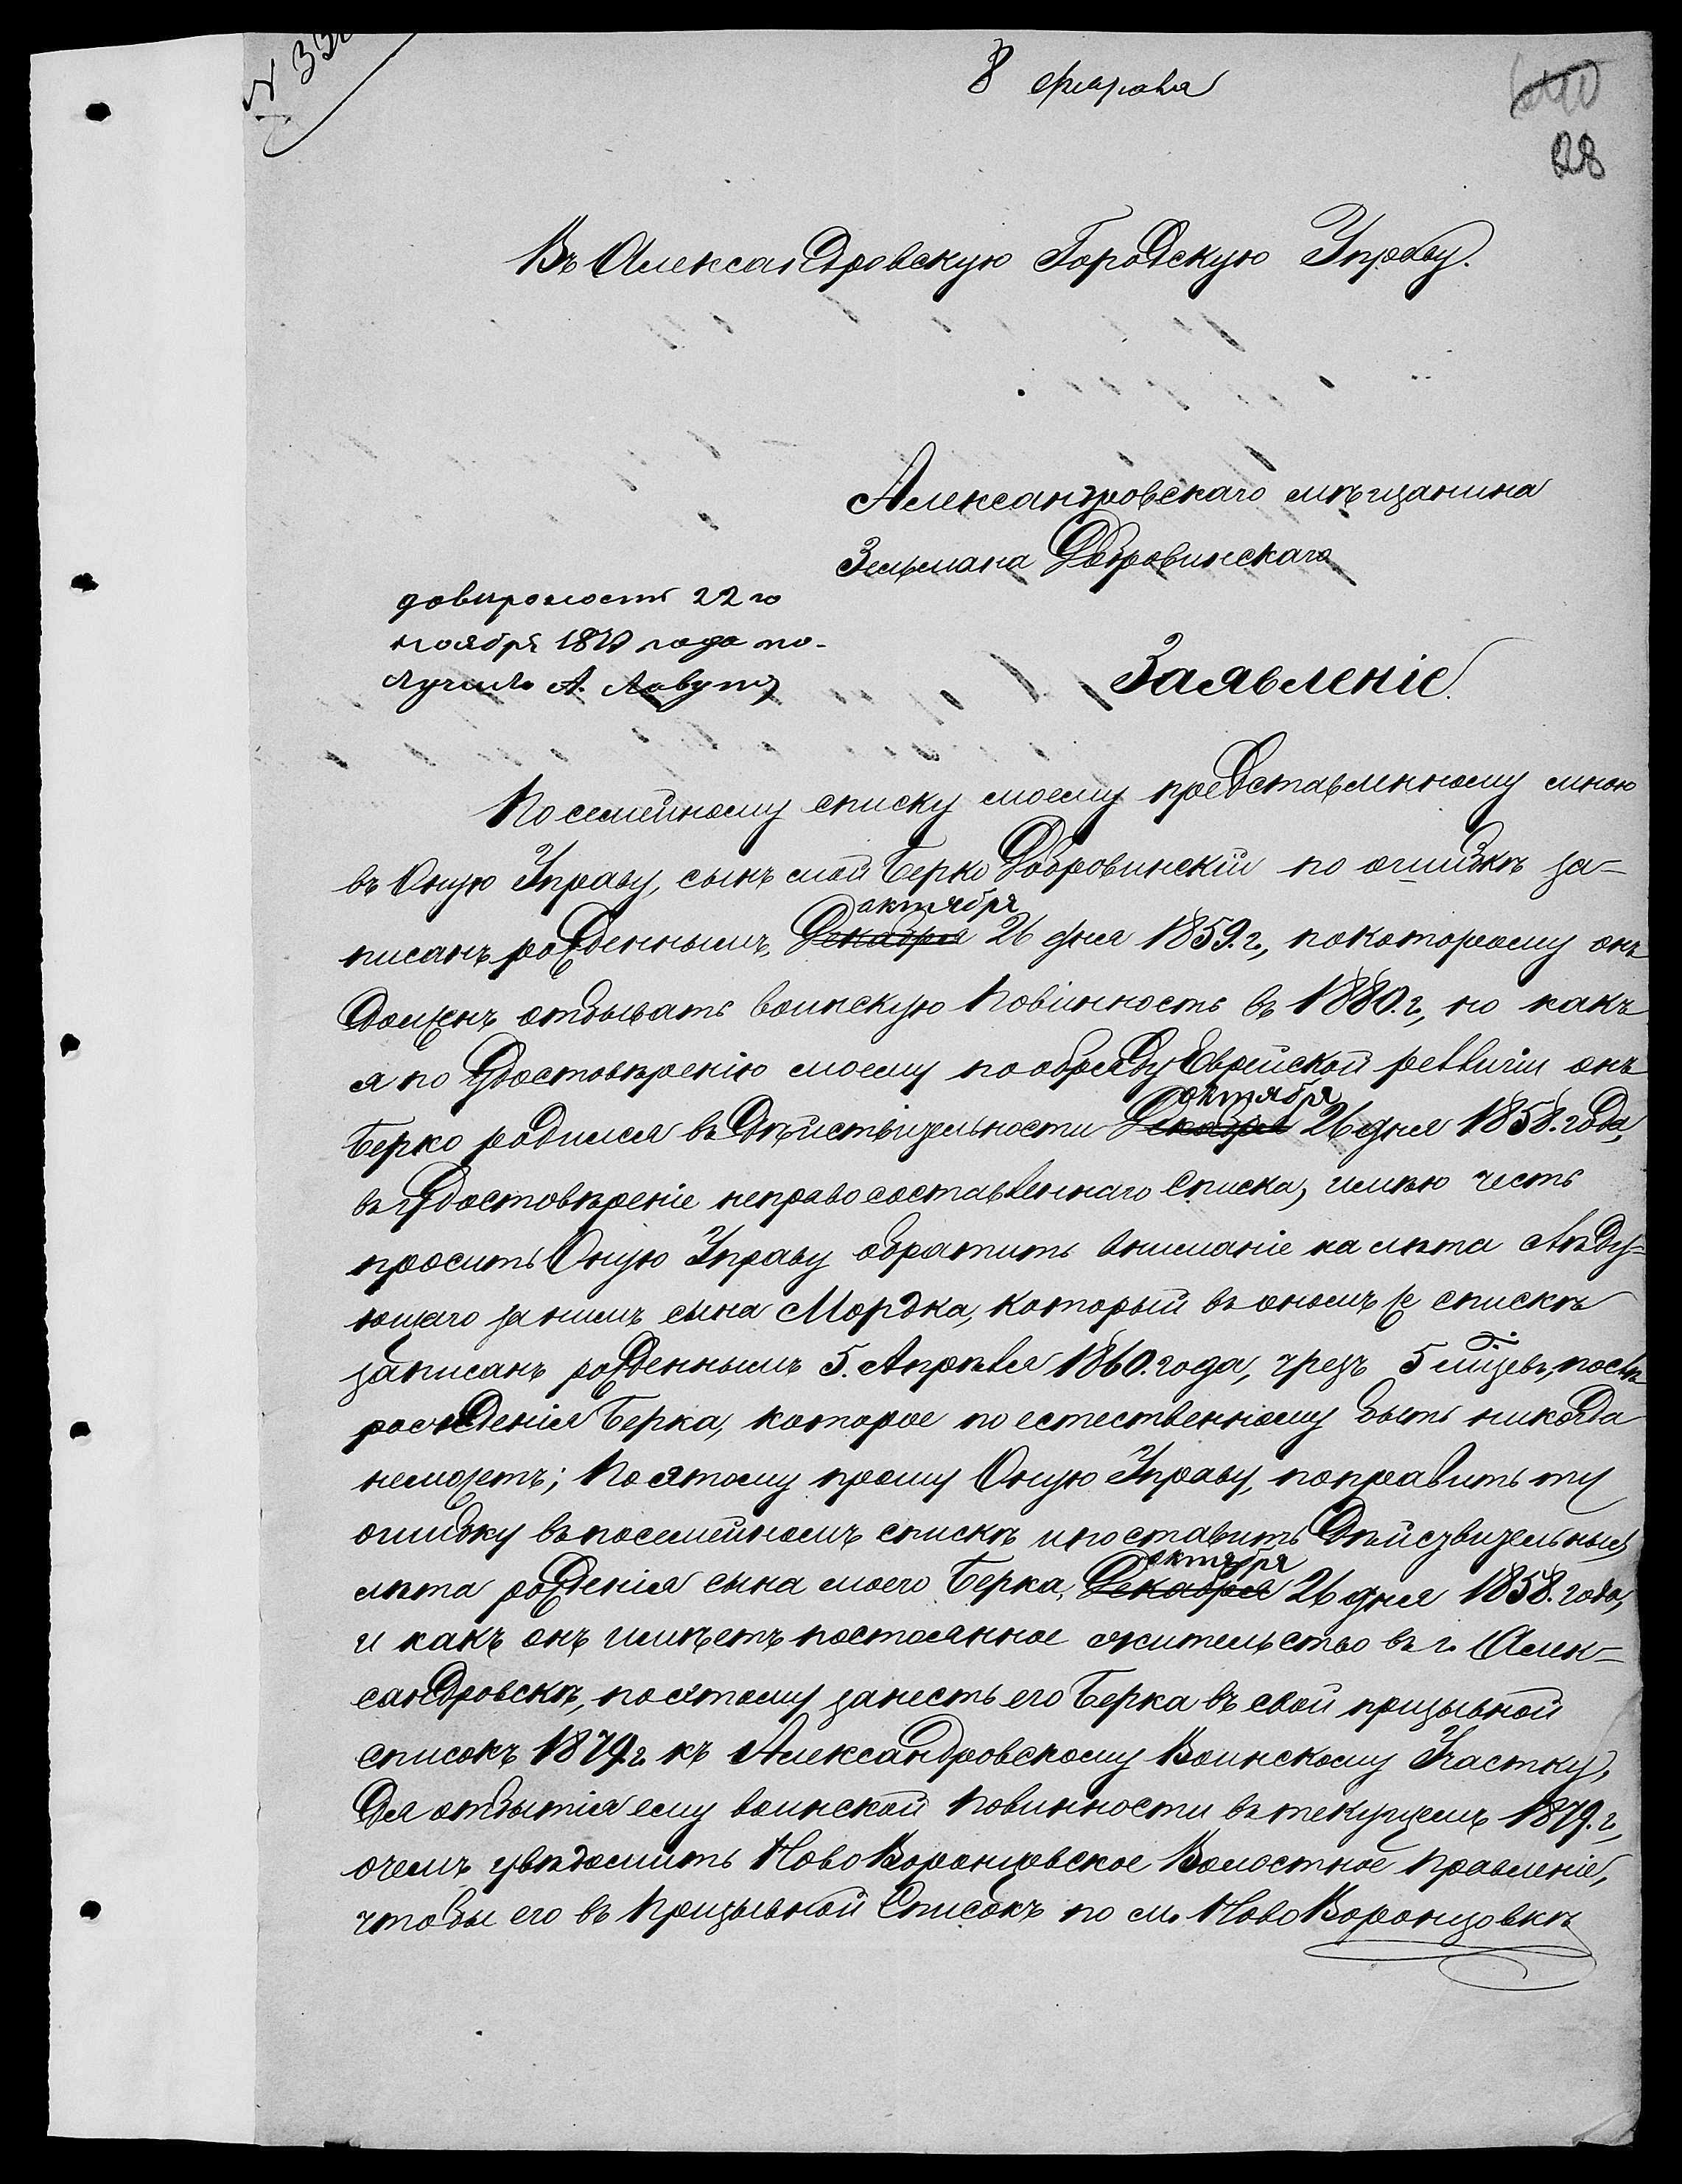 8 февраля
128
Въ Александровскую Городскую Управу.
Александровскаго мѣщанина
Зельмана Добровинскаго
довѣрѣность 22 го
ноября 1879 года по-
лучилъ А. Лавутъ
Заявленіе.
По семейному списку моему представленному мною
въ Оную Управу, сынъ мой Берко Добровинскій по ошибкѣ за-
писанъ рожденнымъ, Декабря октября 26 дня 1859. г., покоторому онъ
Долженъ отбывать воинскую Повинность въ 1880. г., но какъ
я по Удостовѣренію моему по обряду Еврейской реллигіи онъ
Берко родился въ Дѣйствительности Декабря октября 26 дня 1858. года,
въ Удостовѣреніе неправо составленнаго Списка, имѣю честь
просить Оную Управу обратить вниманіе на лѣта слѣду-
ющаго за нимъ сына Мордка, который въ ономъ же спискѣ
записанъ рожденнымъ 5. Апрѣля 1860. года, чрезъ 5 мѣсяцевъ, послѣ
рожденія Берка, которое по естественному быть никогда
неможетъ; Поэтому прошу Оную Управу, поправить ту
ошибку въ посемейномъ спискѣ и поставить Дѣйствительныя
лѣта рожденія сына моего Берка, Декабря октября 26 дня 1858. года,
и какъ онъ имѣетъ постоянное жительство въ г. Алек-
сандровскѣ, поэтому занесть его Берка въ свой призывной
Списокъ 1879 г. къ Александровскому Воинскому Участку,
Для отбытія ему воинской Повинности въ текущемъ 1879. г.,
очемъ увѣдомить Ново Воронцовское Волостное Правленіе,
чтобы его въ Призывной Списокъ по м. Ново Воронцовкѣ